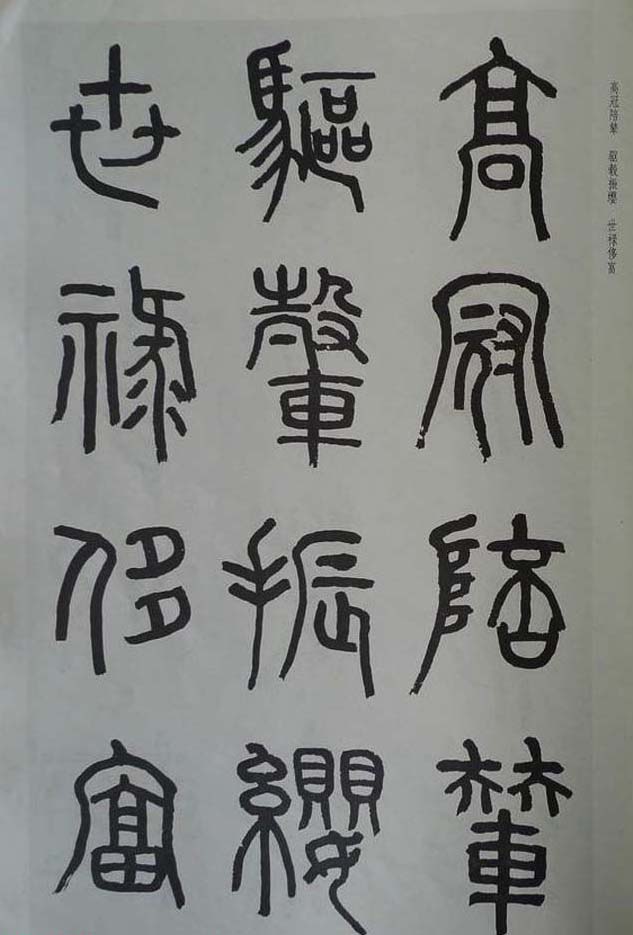 高冠陪輦 驅轂振纓 世祿侈富
高冠陪輦
驅轂振纓
世祿侈富